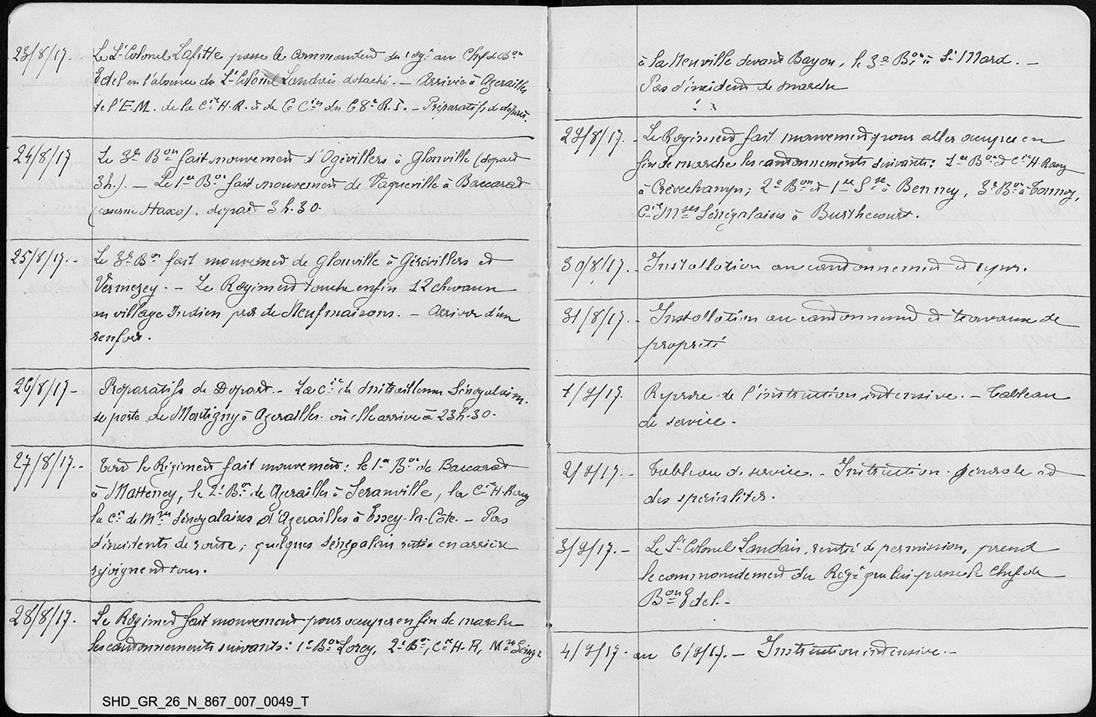 23/8/17.- Le Lt Colonel Lafitte passe le commandemt du régt au Chef de Bon
Edel en l'absence du Lt Colonel Landais détaché. - Arrivée à Azerailles
de l'E.M. de la Cie H-R. & de 6 Cies du 68e R.I. - Préparatifs de départ.
24/8/17 Le 3e Bon fait mouvement d'Ogévillers à Glonville (départ
3h.). - Le 1er Bon fait mouvement de Vaqueville à Baccarat
(caserne Haxo). départ 3h.30.
25/8/17.- Le 3e Bon fait mouvement de Glonville à Gérévillers et
. - Le Régiment touche enfin 12 chevaux
au village Indien près de Neufmaisons. - Arrivée d'un
renfort.
26/8/17- Préparatifs de Départ. - La Cie de mitrailleuses Sénégalaises
se porte de Montigny à Azerailles où elle arrive à 23h.30.
27/8/17.- Tout le Régiment fait mouvement: le 1er Bon de Baccarat
à Mattexey, le 2e Bon de Azerailles à Seranville, la Cie H-Rang
la Cie de Mses Sénégalaises d'Azerailles à Essey-la-Côte. - Pas
d'incidents de route; quelques sénégalais restés en arrière
rejoignent tous.
28/8/17. Le Régiment fait mouvement pour occuper en fin de marche
les cantonnements suivants: 1er Bon Lorey, 2e Bon, Cie H-R, Mses Sénégses
SHD_GR_26_N_867_007_0049_T
à la Neuville devant Bayon, le 3e Bon à St Mard. -
Pas d'incident de marche
29/8/17. Le Régiment fait mouvement pour aller occuper en
fin de marche les cantonnements suivants: 1er Bon & Cie H-Rang
à Crévechamps; 2e Bon et 1re Son à Benney, 3e Bon à Tonnoy,
Cie Mses Sénégalaises à Burthecourt.
30/8/17.- Installation au cantonnement et repos.
31/8/17.- Installation au cantonnement et travaux de
propreté
1/9/17. Reprise de l'instruction intensive. - Tableau
de service.
2/9/17.- Tableau de service. - Instruction générale et
des spécialités.
3/9/17.- Le Lt Colonel Landais, rentré de permission, prend
le commandement du Régt que lui passe le Chef de
Bon Edel.-
4/9/17. au 6/9/17.- Instruction intensive.-